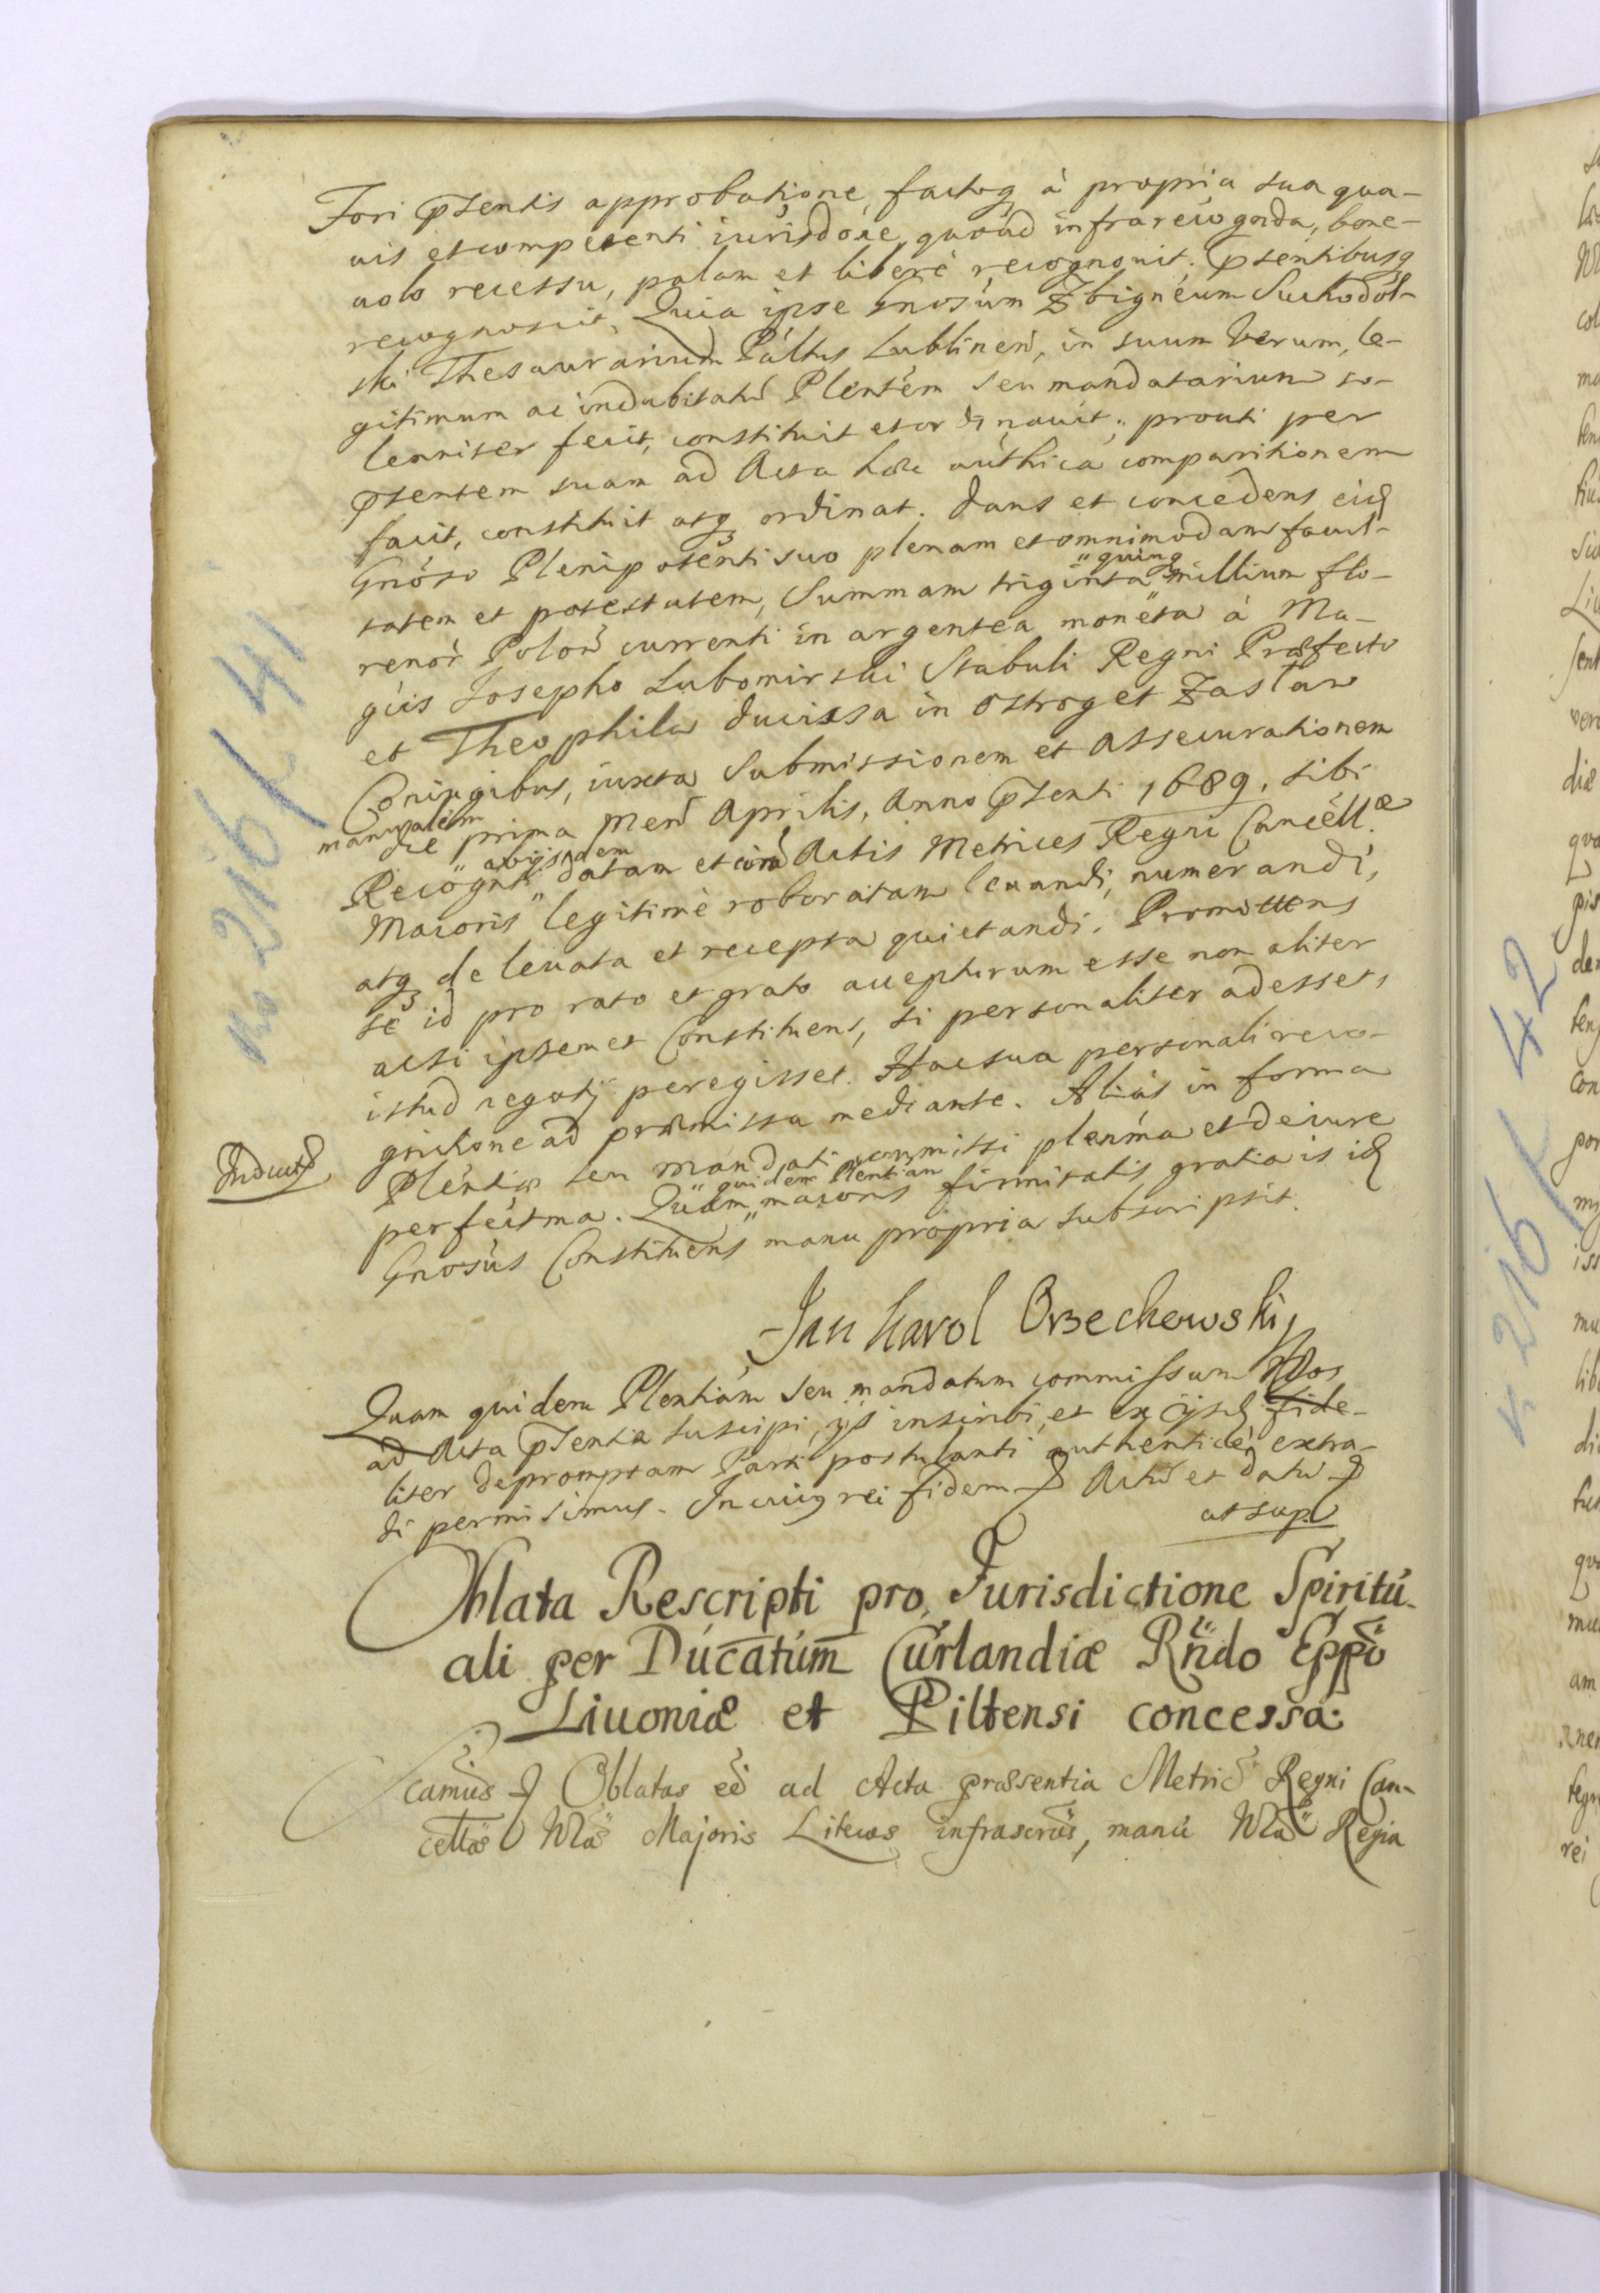 Fori pstentis approbatione, factoq à propria sua qua-
uis et competenti iurisdóie, quoad infra recogñda, bene-
uolo recessu, palam et liberè recognouit. Pstentibusq
recognoscit, Quia ipse Gnosum Zbigneum Suchodol-
ski Thesaurarium Páltus Lublinen, in suum verum, le-
gitimum ac indubitatu Plentem seu mandatarium so-
lenniter fecit, constituit et ordinauit; prout per
pstentem suam ad Acta haec authica comparitionem
facit, constituit atq ordinat. Dans et concedens eid
Gnoso Plenipotenti suo plenam et omnimodam facul-
"quinq
tatem et potestatem, Summam triginta millium flo-
renor Polon currenti in argentea moneta à Ma-
gcis Josepho Lubomirski Stabuli Regni Præfecto
et Theophila Ducissa in Ostrog et Zaslaw
Coniugibus, iuxta Submissionem et Assecurationem
manualem
die prima Men Aprilis, Anno Pstenti 1689. sibi
abijsdem
Recognti datam et cora Actis Metrices Regni Cancellæ
Maioris legitimè roboratam leuandi, numerandi,
atq de leuata et recepta quietandi. Promittens
se id pro rato et grato accepturum esse non aliter
acsi ipsemet Constituens, si personaliter adesset,
istud negoty peregisset. Hac sua personali reco-
gnitione ad præmissa mediante. Aliàs in forma
Inducta
Plentiæ seu mandati commissi plenma et de iure
quidem Plentiam
perfectma. Quam maioris firmitatis gratia is id
Gnosus Constituens manu propria subscripsit.
Jan Karol Orzechowski
Quam quidem Plentiam seu mandatum commissum Nos
ad Acta Pstentia suscipi, ijs inscribi, et ex ijsd fide-
liter depromptam Parti postulanti authenticè extra-
di permisimus. In cuiq rei fidem Actu et datu
ut sup.
Oblata Rescripti pro Jurisdictione Spiritu-
ali per Ducatum Curlandiæ Rndo Eppo
Liuoniæ et Piltensi concessa.
camus Oblatas eé ad Acta præsentia Metric Regni Can-
cellæ Nræ Majoris Literas infrascrus, manu Nra Regia
No 216 K 41